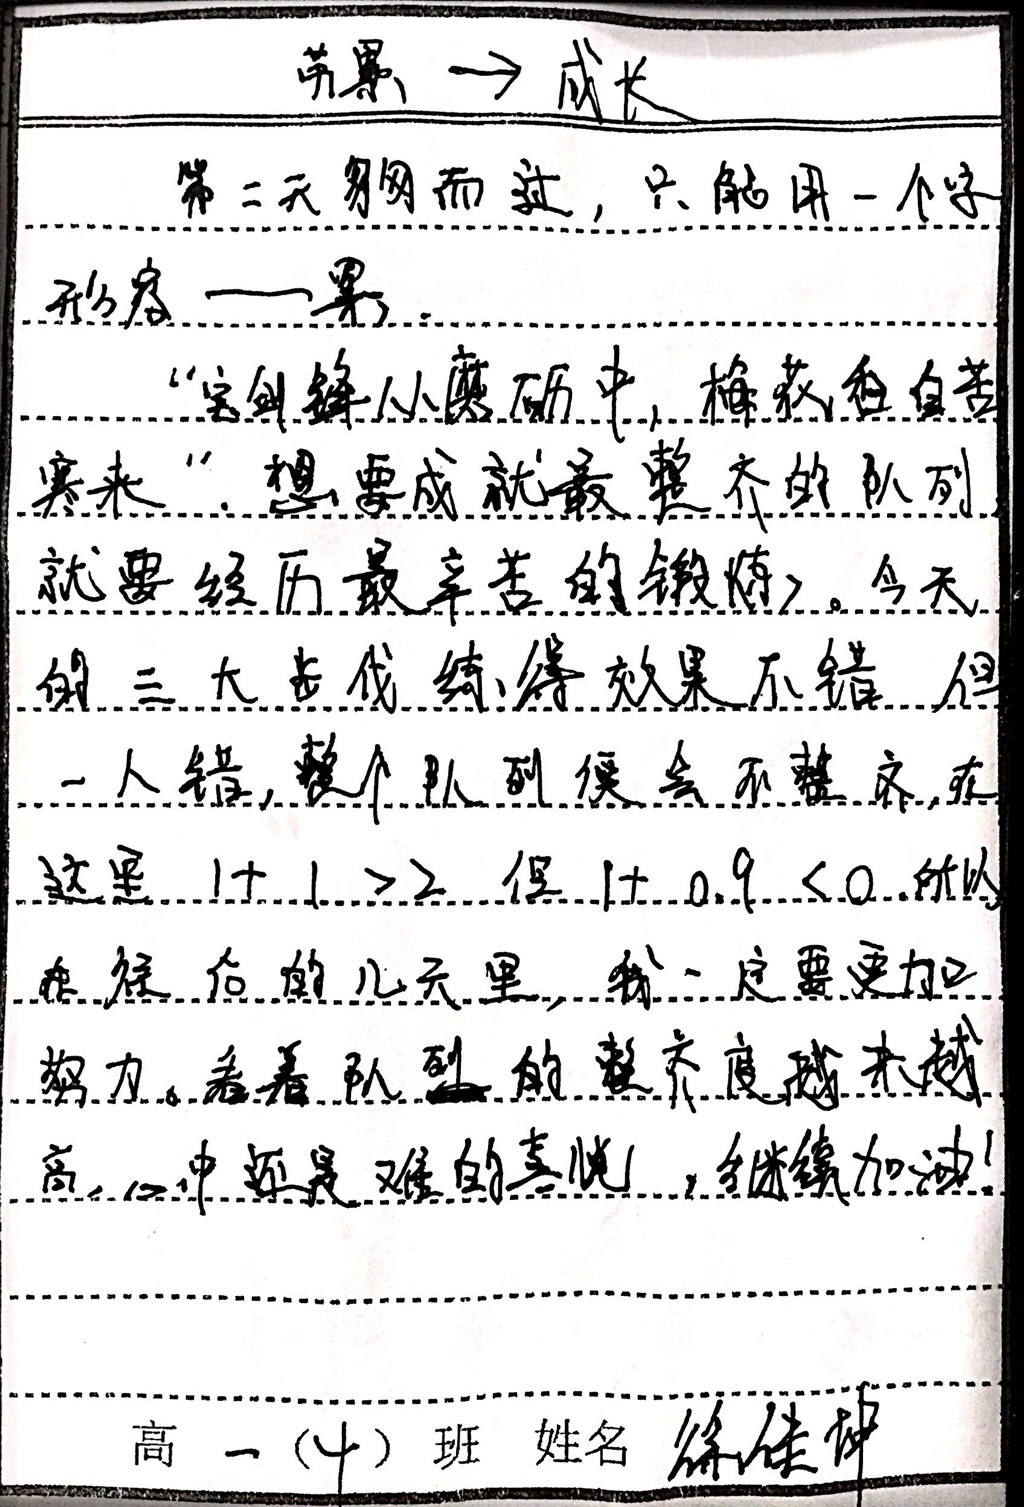 劳累 → 成长
第二天匆匆而过，只能用一个字
形容——累.
“宝剑锋从磨砺中，梅花香自苦
寒来”.想要成就最整齐的队列
就要经历最辛苦的锻炼。今天
的三大步伐练得效果不错 但
一人错，整个队列便会不整齐，在
这里 1+1>2 但 1+0.9<0.所以
在往后的几天里，我一定要更加
努力。看着队列的整齐度越来越
高，心中还是难的喜悦，继续加油！
高一（4）班 姓名 徐佳坤